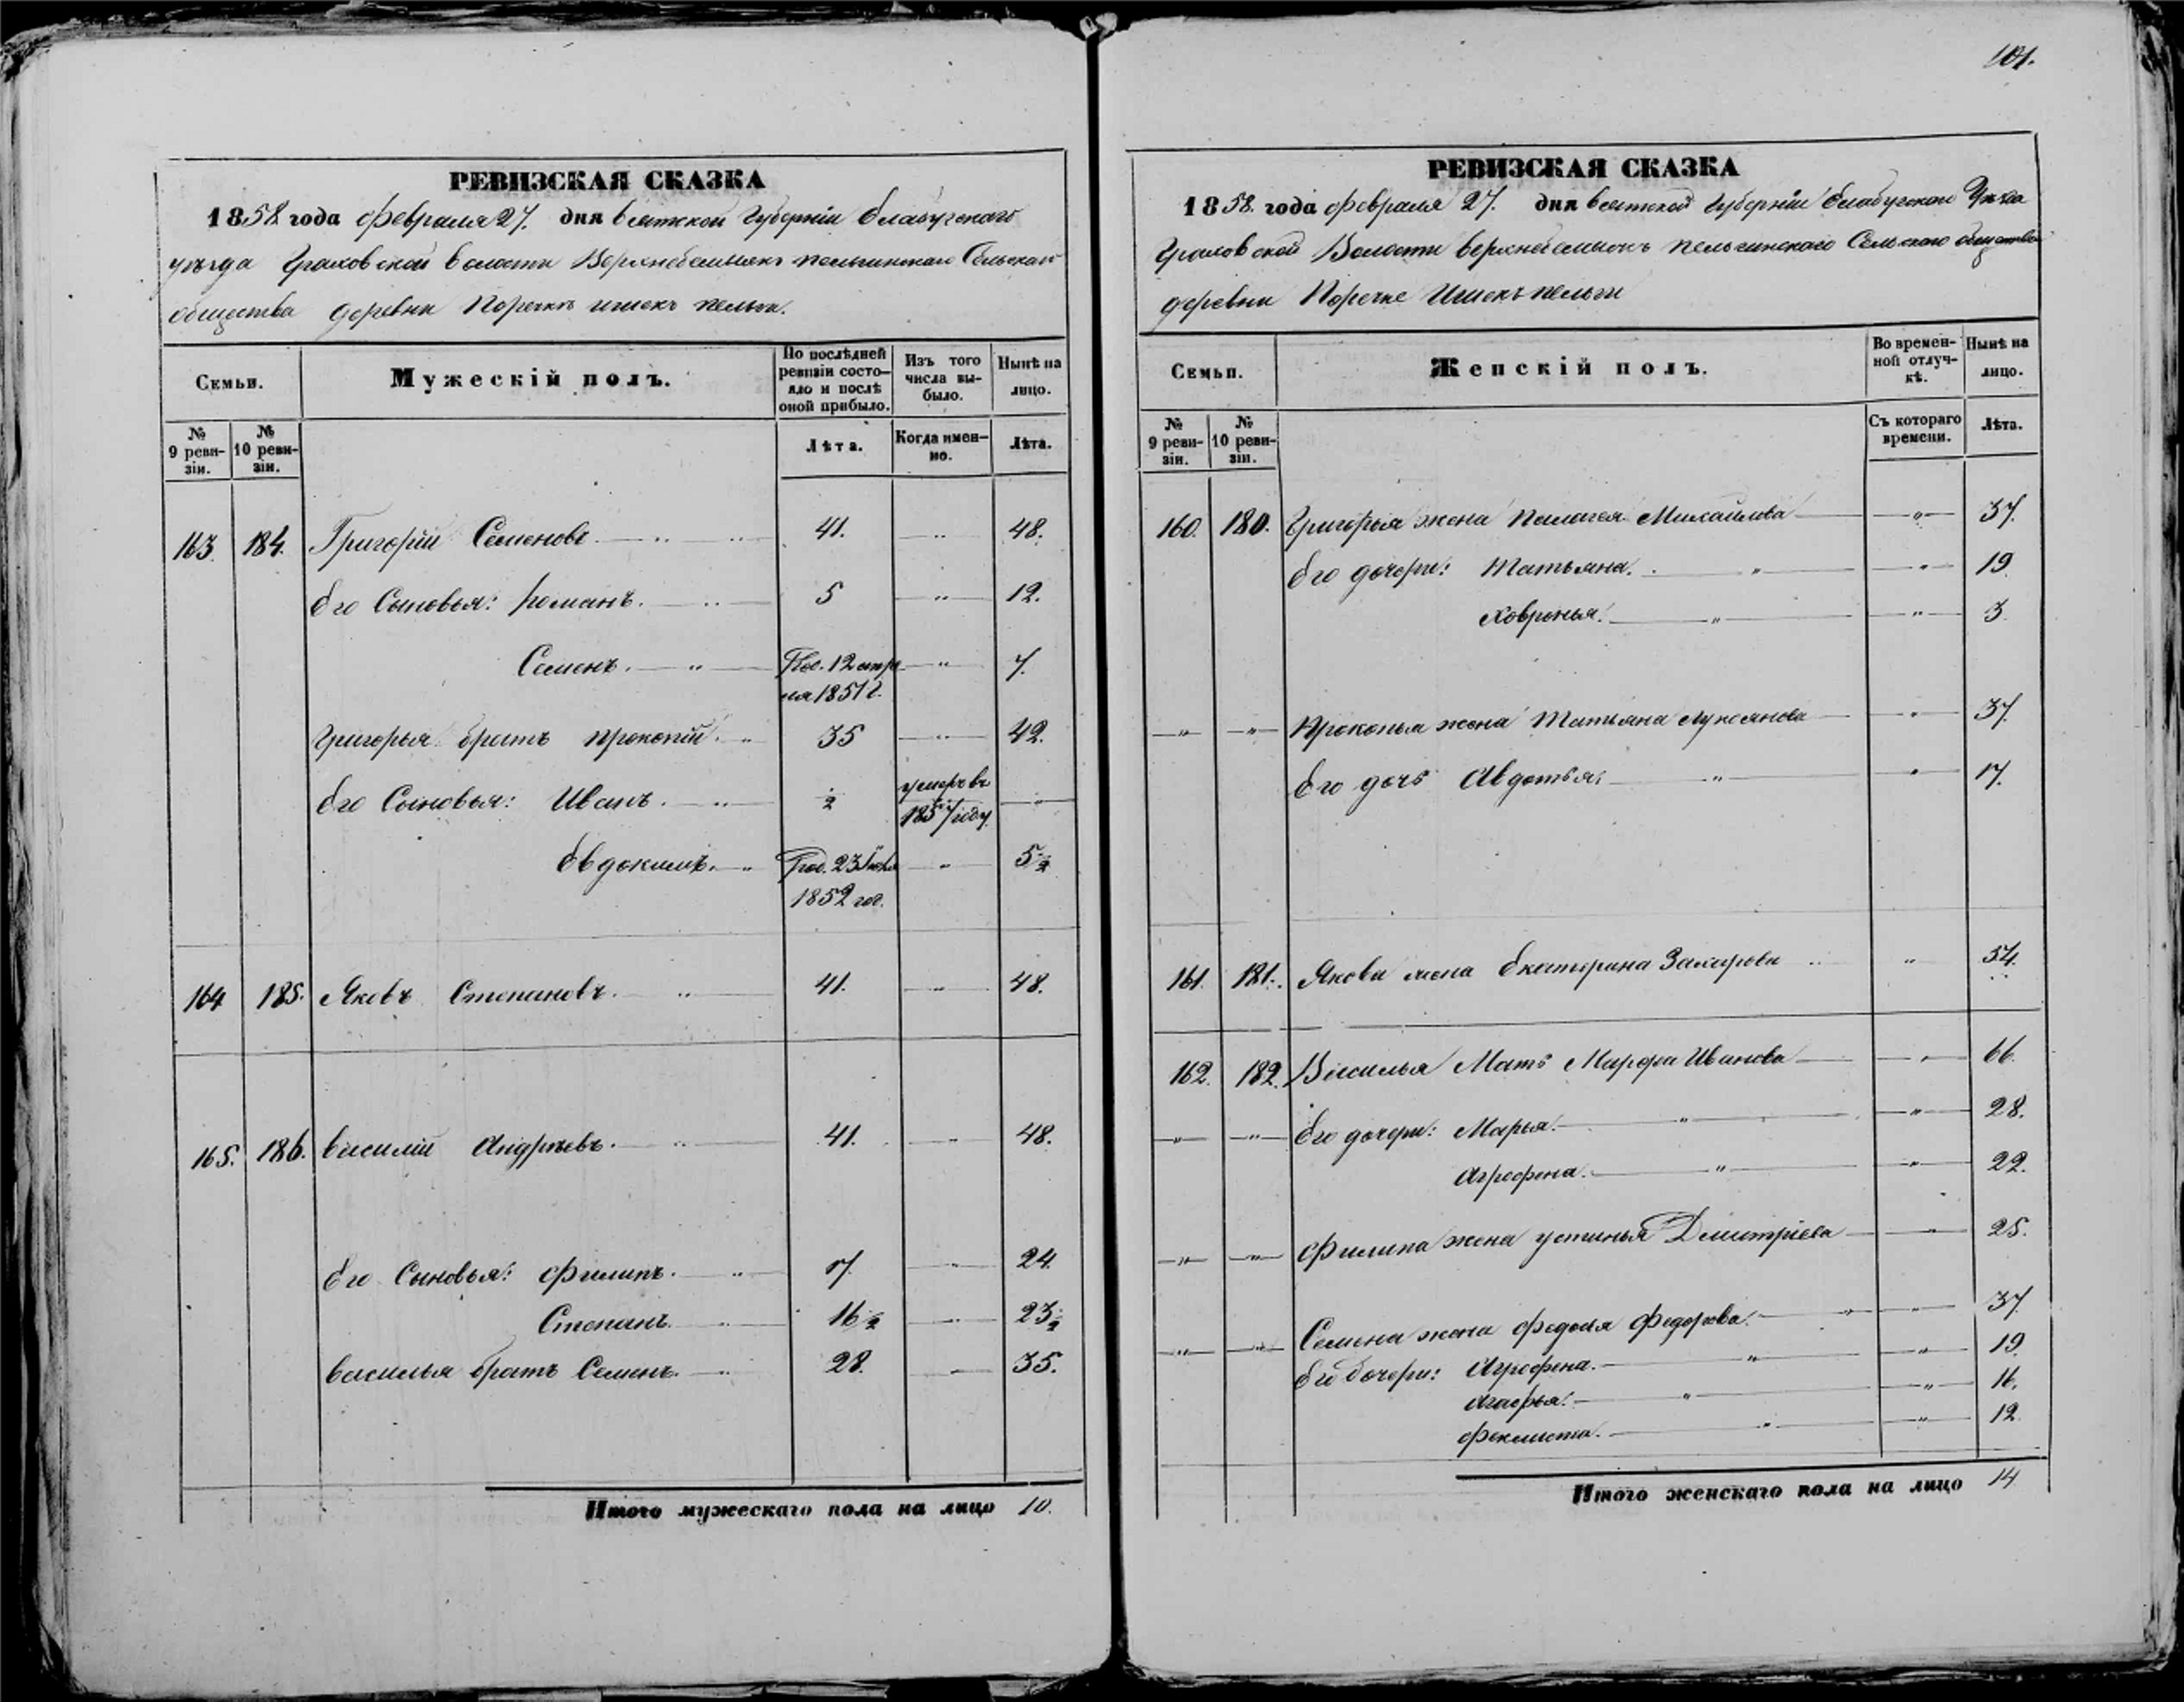 101.
РЕВИЗСКАЯ СКАЗКА
1858 года февраля 27. дня вятской Губерніи Елабугскаго
уѣзда Граховской волости Верхнебемыжъ пельгинскаго Сельскаго
общества деревни Поречкѣ ишекъ пельги.
Семьи.
Мужескій полъ.
По послѣдней ревизіи состояло и послѣ оной прибыло.
Изъ того числа выбыло.
Нынѣ на лицо.
№ 9 ревизіи.
№ 10 ревизіи.
Лѣта.
Когда именно.
Лѣта.
163. 184. Григорій Семеновъ. 41. 48.
Его Сыновья: Романъ. 5 12.
Семенъ. Род. 12 апреля 1851 г. 7.
Григорья братъ прокопій. 35 42.
Его Сыновья: Иванъ. ½ умеръ въ 1857 году
Евдокимъ. Род. 23 Іюля 1852 год. 5½
164 185. Яковъ Степановъ. 41. 48.
165. 186. Василій Андрѣевъ. 41. 48.
Его Сыновья: Филипъ. 17. 24.
Степанъ. 16½ 23½
Василья братъ Семенъ. 28. 35.
Итого мужескаго пола на лицо 10.
РЕВИЗСКАЯ СКАЗКА
1858. года февраля 27. дня вятской Губерніи Елабугскаго Уѣзда
Граховской Волости Верхнебемыжъ пельгинскаго Сельскаго общества
деревни Поречке Ишекъ пельги
Семьи.
Женскій полъ.
Во временной отлучкѣ.
Нынѣ на лицо.
№ 9 ревизіи.
№ 10 ревизіи.
Съ котораго времени.
Лѣта.
160. 180. Григорья жена Палагея Михайлова 37.
Его дочери: Татьяна. 19
Ховронья. 3.
Прокопья жена Татьяна Лукоянова 37.
Его дочь Авдотья. 17.
161. 181. Якова жена Екатерина Захарова 54.
162. 182. Василья Мать Марфа Иванова 66.
Его дочери: Марья. 28.
Агрофена. 22.
Филипа жена устинья Дмитріева 25.
Семена жена Федосья Федорова. 37
Его дочери: Агрофена. 19.
Агафья. 16.
Феклиста. 12.
Итого женскаго пола на лицо 14